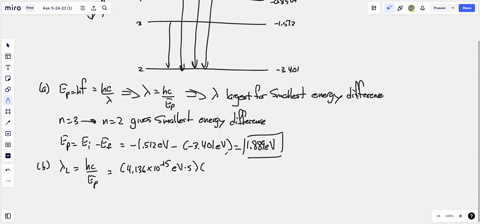 miro
Present
Share
-0.8504
3 -1.512
2 -3.401
(a) Ep=hf = hc/λ ⇒ λ = hc/Ep ⇒ λ largest for smallest energy difference
n=3 → n=2 gives smallest energy difference
Ep = Ei - Ef = -1.512 eV - (-3.401 eV) = 1.889 eV
(b) λL = hc/Ep = (4.136×10^-15 eV·s)(